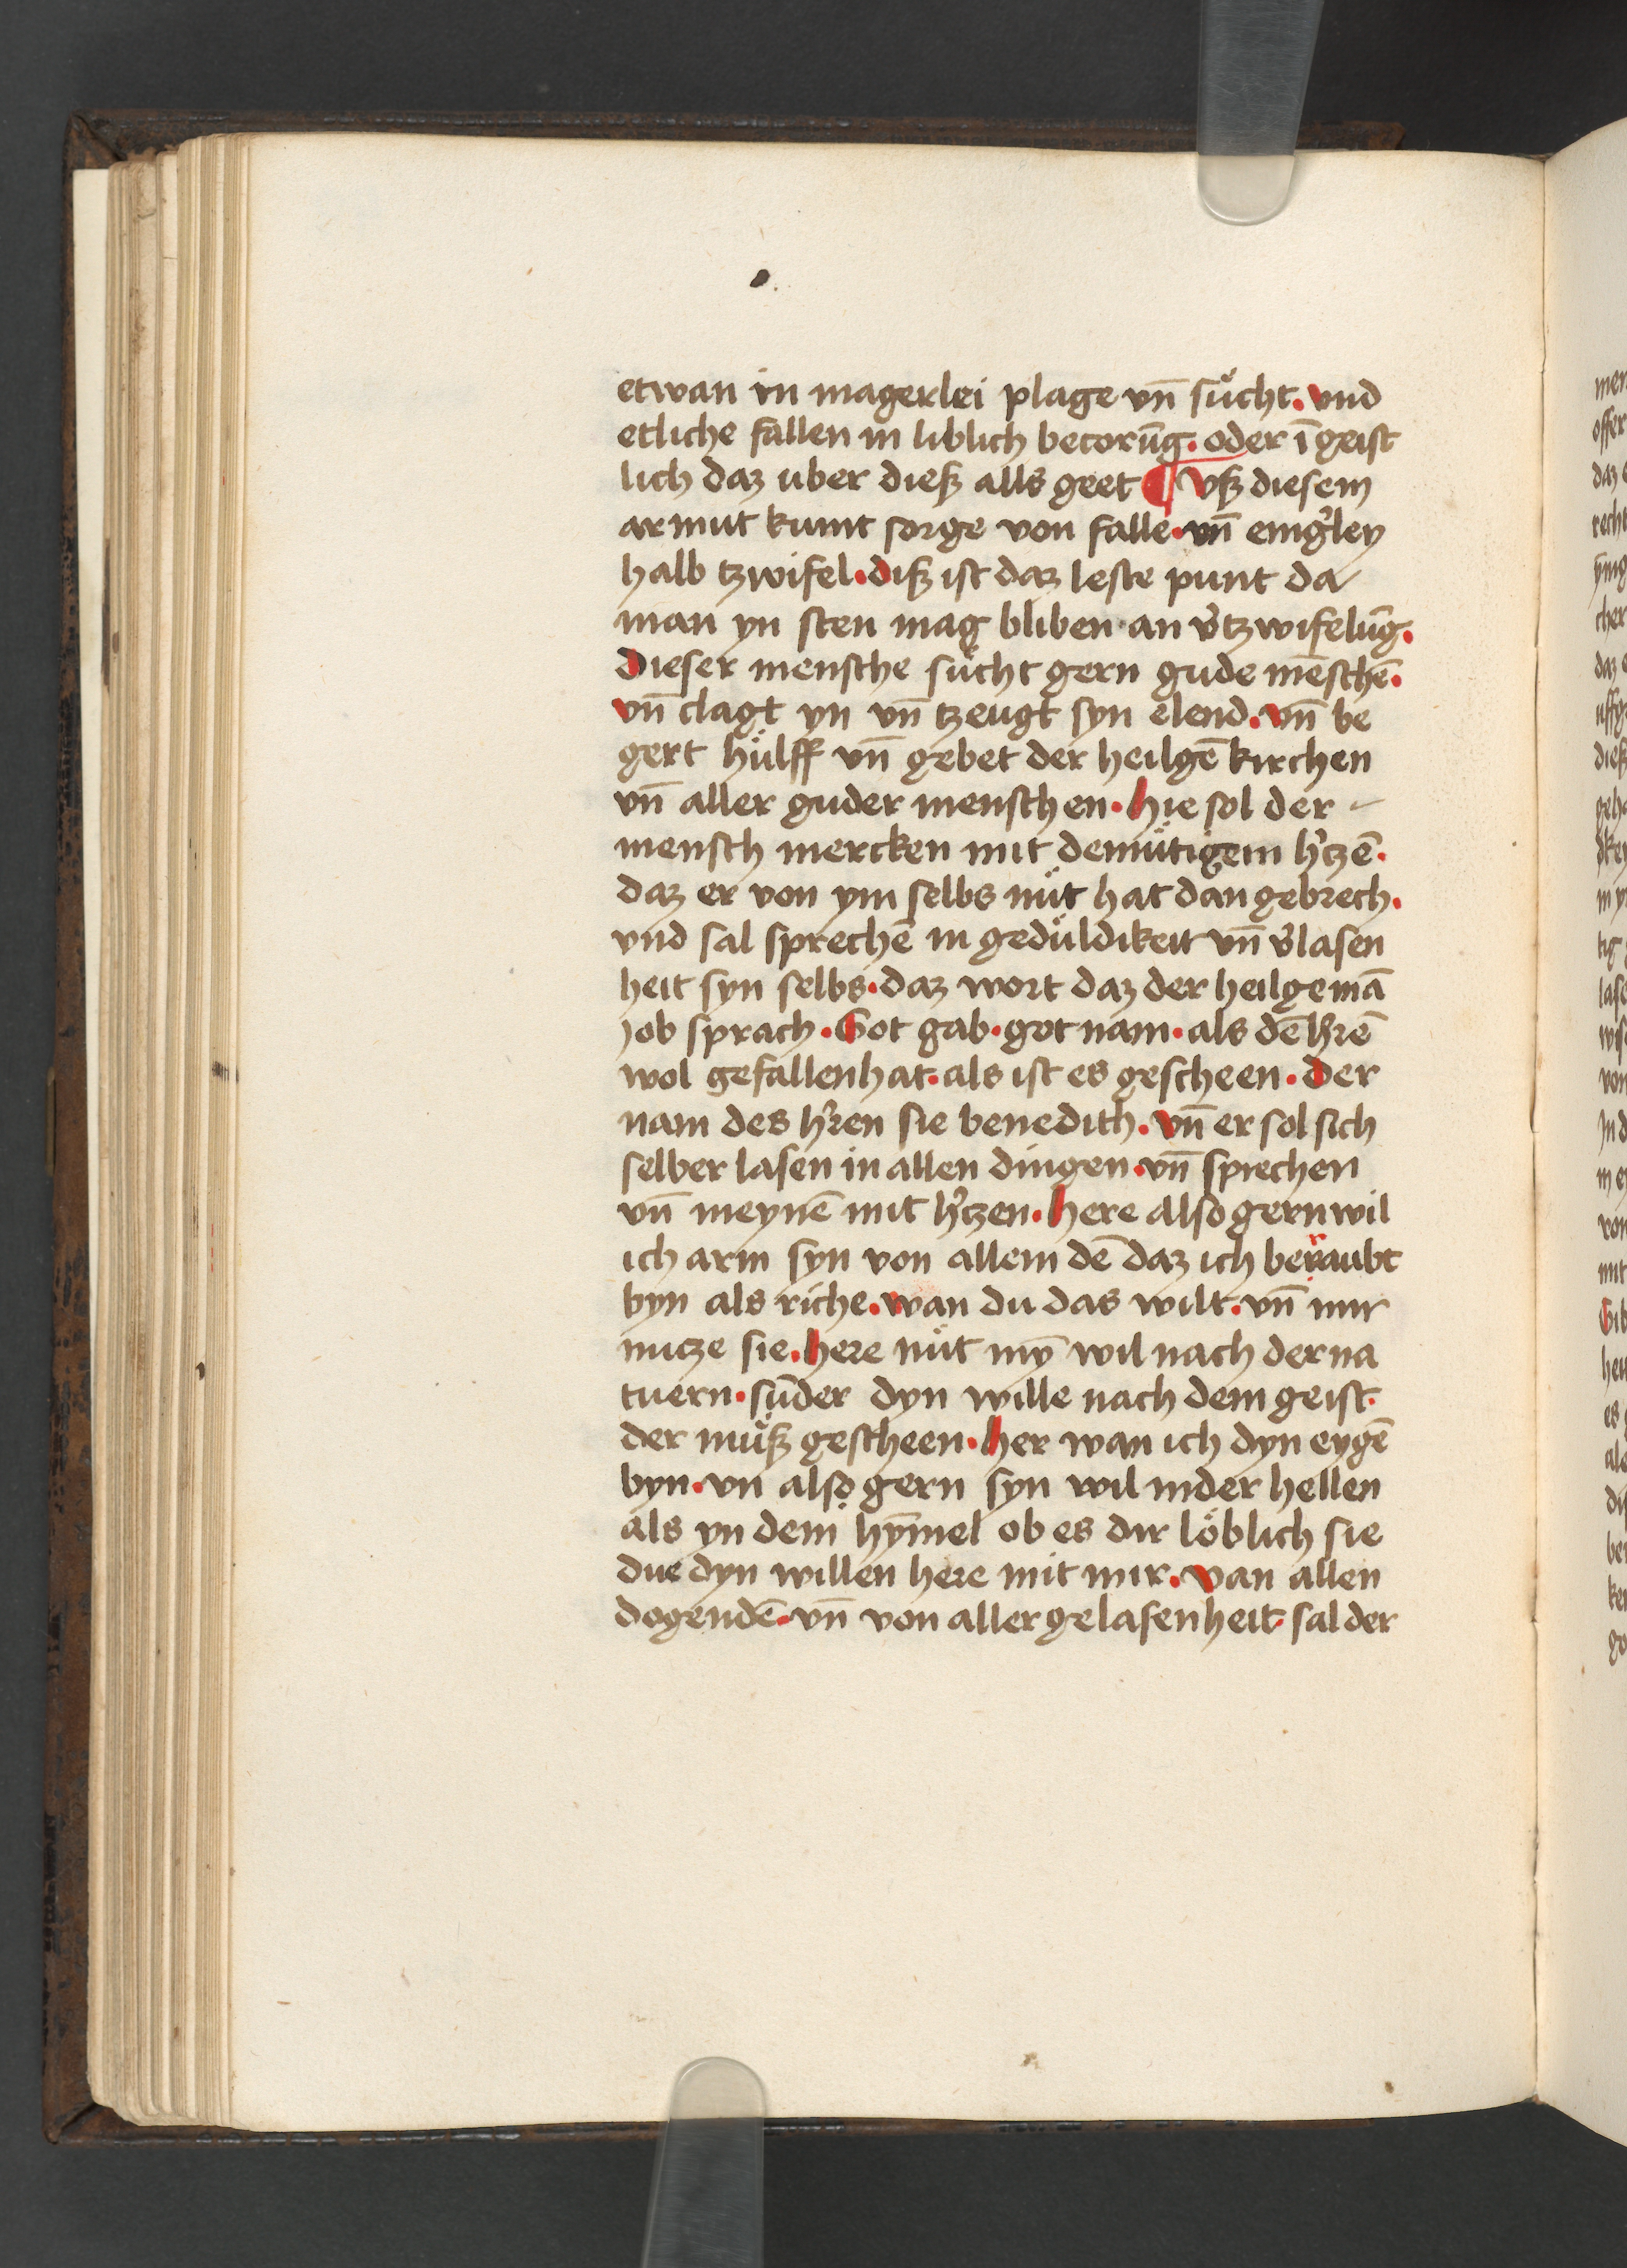 etwan in magerlei plage vn̄ sůcht. vnd
etliche fallen in liblich becorūg. oder ī geist
lich daz uber dieß alls geet ¶ Vß diesem
armut kumt sorge von falle. vn̄ einig̾ley
halb tzwifel. diß ist daz leste punt da
man yn sten mag bliben an v̾tzwifelūg.
Dieser mensche sůcht gern gude mēschē.
vn̄ clagt yn vn̄ tzeugt syn elend. vn̄ be
gert hůlff vn̄ gebet der heilgē kirchen
vn̄ aller guder menschen. hie sol der
mensch mercken mit demůtigem h̾tzē.
daz er von ym selbs nůt hat dan gebrech.
vnd sal sprechē in gedůldikeit vn̄ v̾lasen
heit syn selbs. daz wort daz der heilge mā
Job sprach. Got gab. got nam. als dē h̾rē
wol gefallen hat. als ist es gescheen. der
nam des h̾ren sie benedith. vn̄ er sol sich
selber lasen in allen dingen. vn̄ sprechen
vn̄ meynē mit h̾tzen. here also gern wil
ich arm syn von allem dē daz ich beraubt
byn als riche. wan du das wilt. vn̄ mir
nutze sie. here nůt mȳ wil nach der na
tuern. sūder dyn wille nach dem geist.
der můß gescheen. her wan ich dyn eygē
byn. vn also gern syn wil in der hellen
als yn dem hȳmel ob es dir löblich sie
due dyn willen here mit mir. Van allen
dogendē. vn̄ von aller gelasenheit sal der